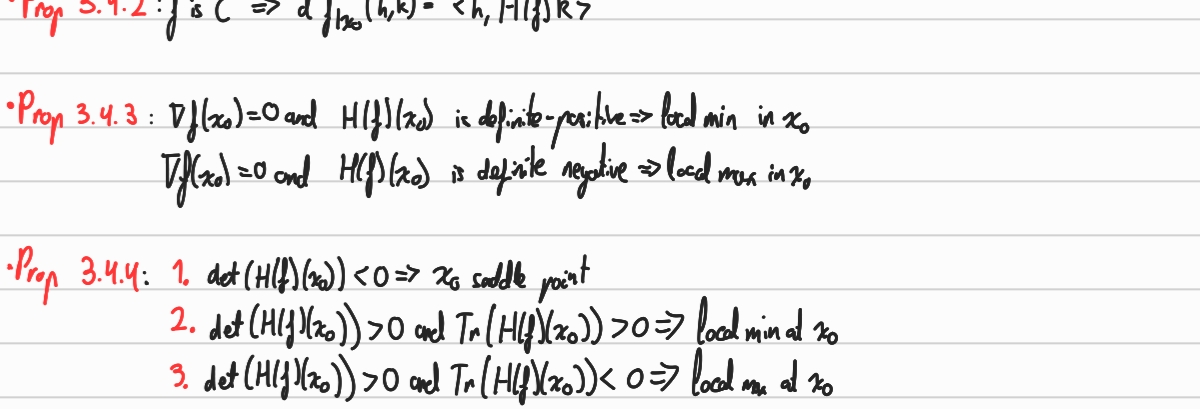 •Prop 3.4.2 : f is C => d f|x₀ (h,k) = <h, H(f) k>
•Prop 3.4.3 : ∇f(x₀)=0 and H(f)(x₀) is definite-positive => local min in x₀
∇f(x₀)=0 and H(f)(x₀) is definite negative => local max in x₀
•Prop 3.4.4: 1. det(H(f)(x₀))<0 => x₀ saddle point
2. det(H(f)(x₀))>0 and Tr(H(f)(x₀))>0 => local min at x₀
3. det(H(f)(x₀))>0 and Tr(H(f)(x₀))<0 => local max at x₀